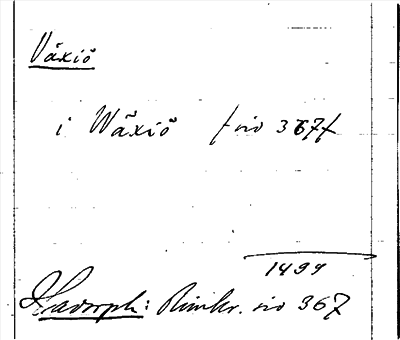 Växiö
i Wäxiö f sid 367f
1499
Hadorph: Rimkr. sid 367